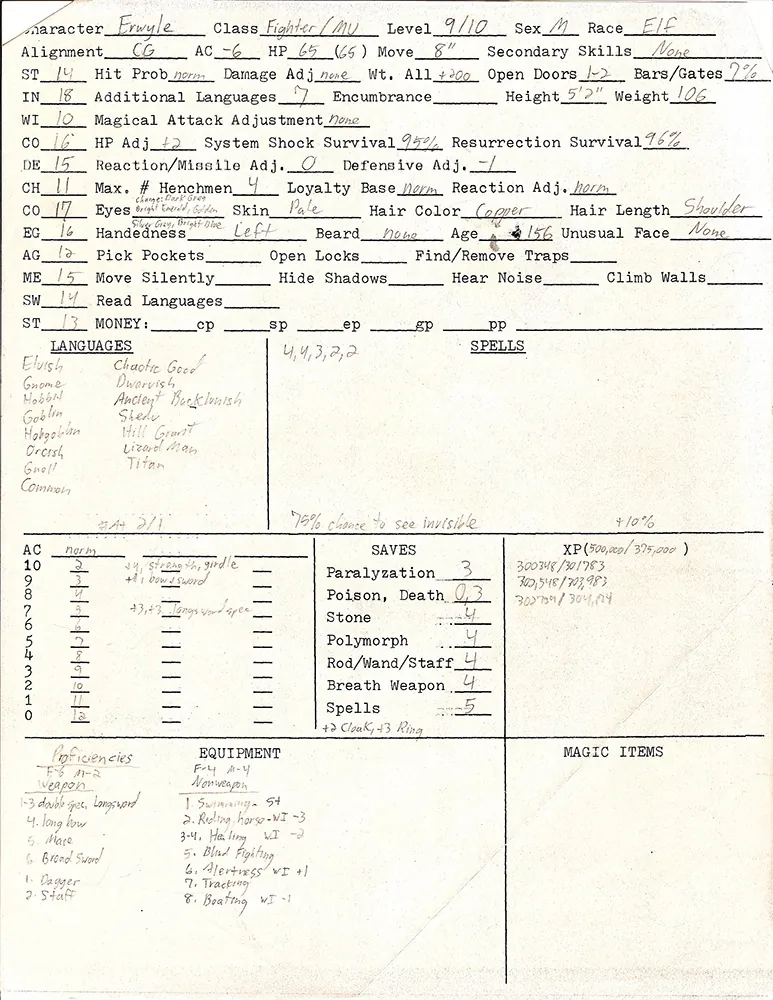 Character Erwyle Class Fighter/MU Level 9/10 Sex M Race Elf
Alignment CG AC -6 HP 65 (65) Move 8" Secondary Skills None
ST 14 Hit Prob norm Damage Adj none Wt. All +200 Open Doors 1-2 Bars/Gates 7%
IN 18 Additional Languages 7 Encumbrance Height 5'2" Weight 106
WI 10 Magical Attack Adjustment none
CO 16 HP Adj +2 System Shock Survival 95% Resurrection Survival 96%
DE 15 Reaction/Missile Adj. 0 Defensive Adj. -1
CH 11 Max. # Henchmen 4 Loyalty Base norm Reaction Adj. norm
change: Dark Grey
CO 17 Eyes Bright Emerald, Golden Skin Pale Hair Color Copper Hair Length Shoulder
Silver Grey, Bright Blue
EG 16 Handedness Left Beard none Age 156 Unusual Face None
AG 12 Pick Pockets Open Locks Find/Remove Traps
ME 15 Move Silently Hide Shadows Hear Noise Climb Walls
SW 14 Read Languages
ST 13 MONEY: cp sp ep gp pp
LANGUAGES
Elvish Chaotic Good
Gnome Dwarvish
Hobbit Ancient Backlunish
Goblin Shedu
Hobgoblin Hill Giant
Orcish Lizard Man
Gnoll Titan
Common
#At 2/1
SPELLS
4,4,3,2,2
75% chance to see invisible +10%
AC norm
10 2 +4, strength, girdle
9 3 +1, bow & sword
8 4
7 5 +3,+3 longsword spec
6 6
5 7
4 8
3 9
2 10
1 11
0 12
SAVES
Paralyzation 3
Poison, Death 0,3
Stone 4
Polymorph 4
Rod/Wand/Staff 4
Breath Weapon 4
Spells 5
+2 Cloak, +3 Ring
XP (500,000/375,000)
300348/301783
302,548/303,983
302709/304,144
Proficiencies
F-6 M-2
Weapon
1-3 double spec, Longsword
4. long bow
5. Mace
6 Broad Sword
1. Dagger
2. Staff
EQUIPMENT
F-4 M-4
Nonweapon
1. Swimming - St
2. Riding, horse - WI -3
3-4. Healing WI -2
5. Blind Fighting
6. Alertness WI +1
7. Tracking
8. Boating WI -1
MAGIC ITEMS